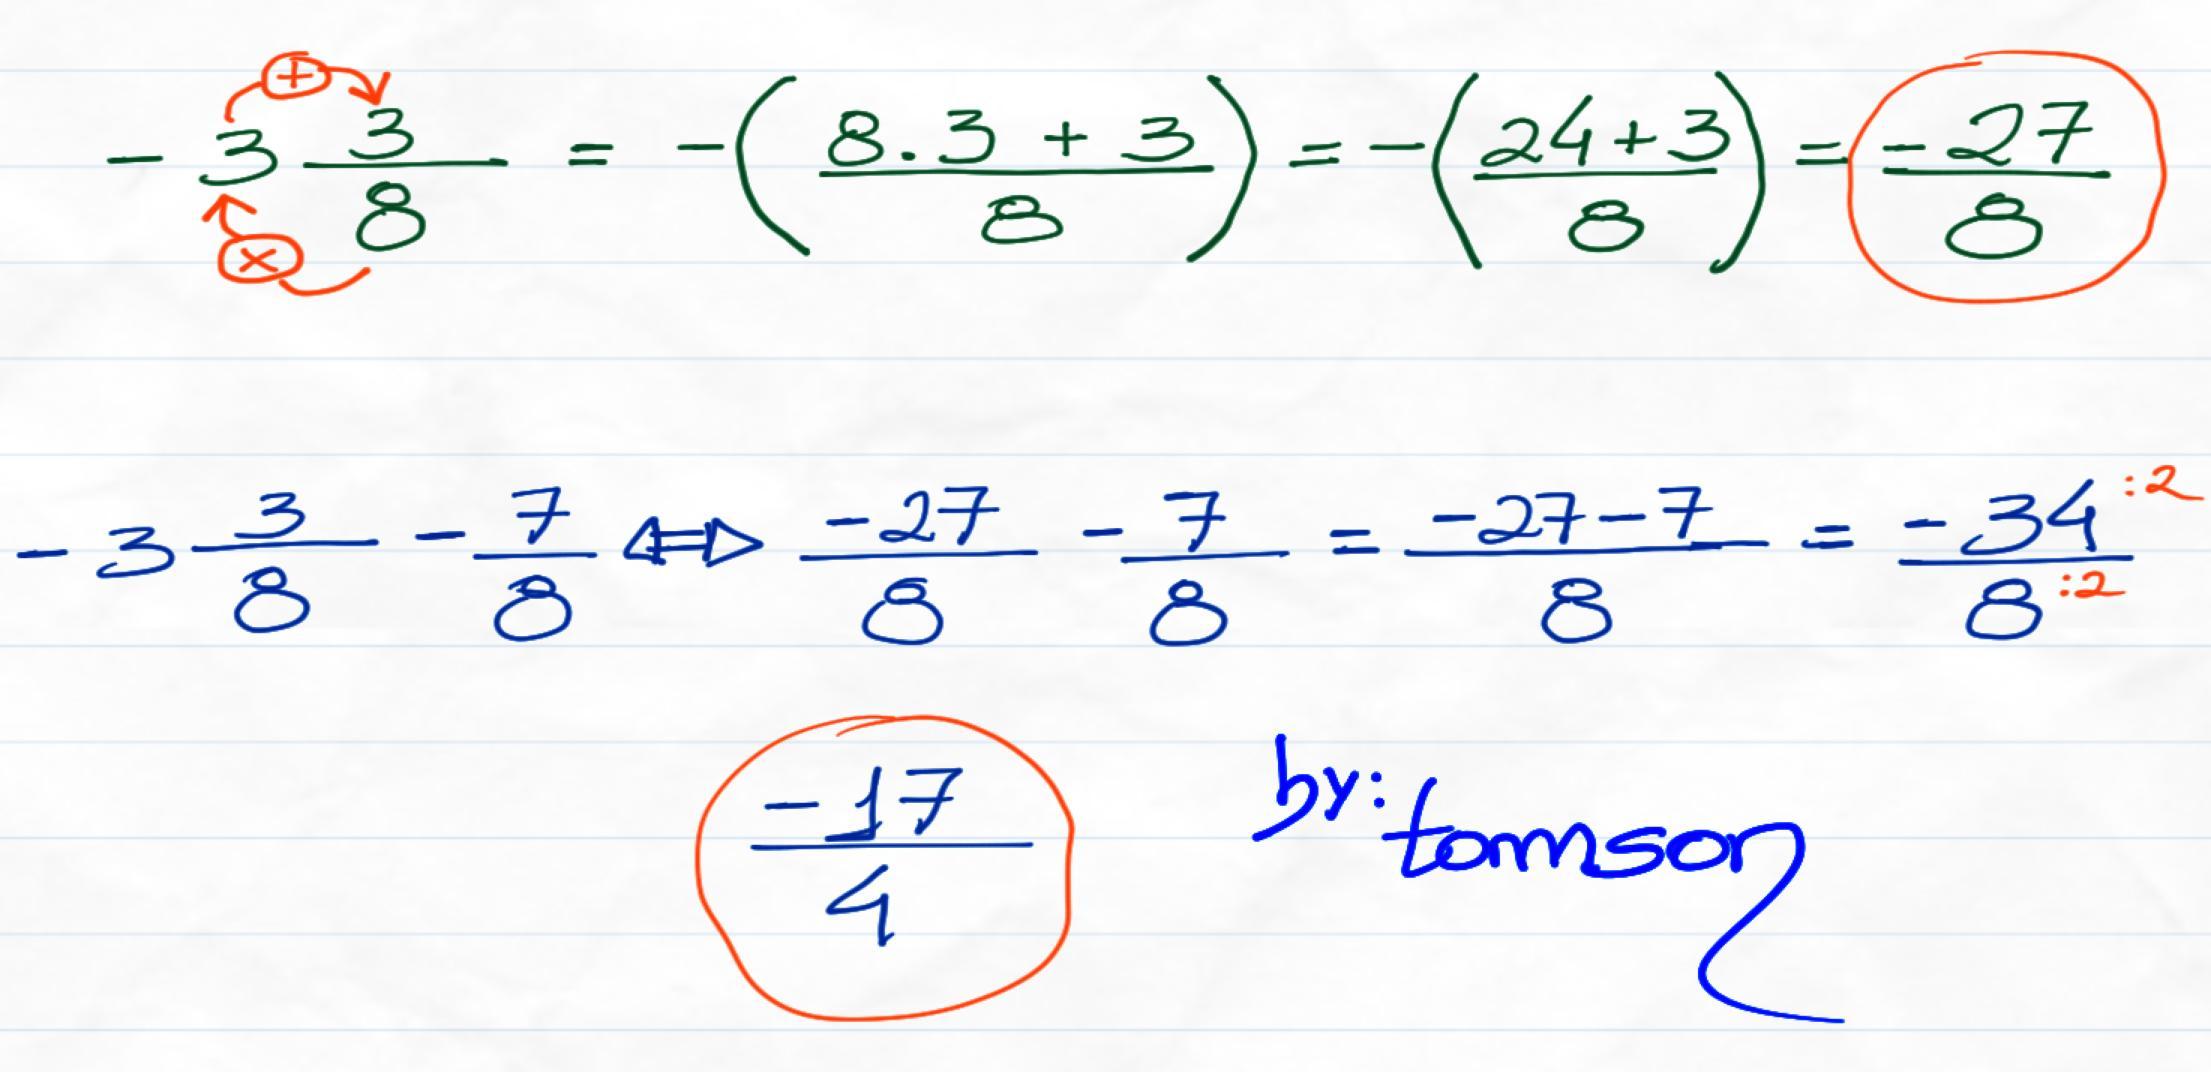 - 3 3/8 = -(8.3 + 3 / 8) = -(24+3 / 8) = -27/8
+
×
- 3 3/8 - 7/8 ⇔ -27/8 - 7/8 = -27-7/8 = -34 :2 / 8 :2
-17/4
by: tomson